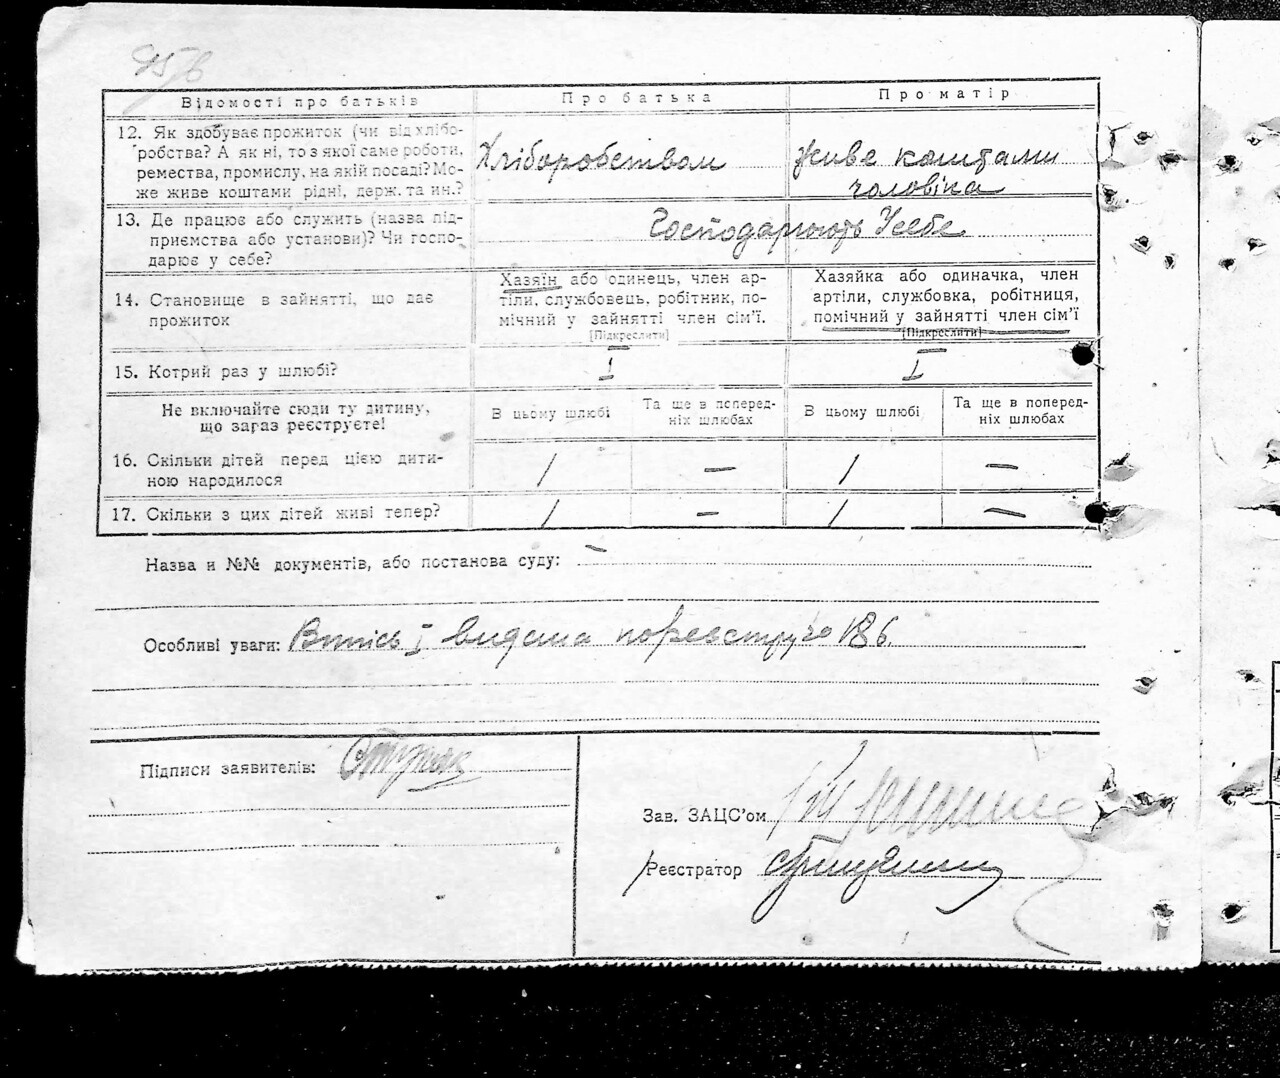 Відомості про батьків Про батька Про матір
12. Як здобуває прожиток (чи від хлібо-
робства? А як ні, то з якої саме роботи,
ремества, промислу, на якій посаді? Мо-
же живе коштами рідні, держ. та ин.?
Хліборобством
Живе коштами
чоловіка
13. Де працює або служить (назва під-
приємства або установи)? Чи госпо-
дарює у себе?
Господарюють У себе
14. Становище в зайнятті, що дає
прожиток
Хазяїн або одинець, член ар-
тіли, службовець, робітник, по-
мічний у зайнятті член сім'ї.
[Підкреслити]
Хазяйка або одиначка, член
артіли, службовка, робітниця,
помічний у зайнятті член сім'ї
[Підкреслити]
15. Котрий раз у шлюбі? I I
Не включайте сюди ту дитину,
що зараз реєструєте!
В цьому шлюбі
Та ще в поперед-
ніх шлюбах
В цьому шлюбі
Та ще в поперед-
ніх шлюбах
16. Скільки дітей перед цією дити-
ною народилося
1 — 1 —
17. Скільки з цих дітей живі тепер? 1 — 1 —
Назва и №№ документів, або постанова суду: —
Особливі уваги: Випись I видана по реєстру за 186.
Підписи заявителів:
Зав. ЗАЦС'ом
Реєстратор